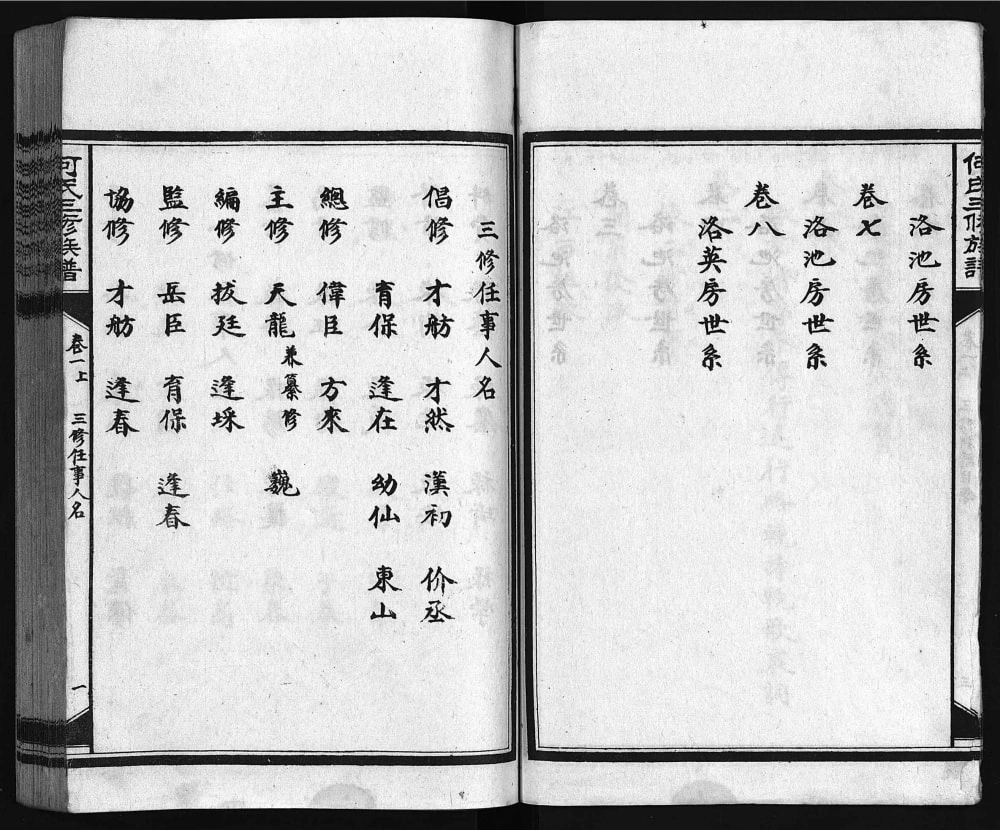 何氏三修族譜
洛池房世系
卷七
洛池房世系
卷八
洛英房世系
三修任事人名
倡修 才舫 才然 漢初 价丞
育保 逢在 幼仙 東山
總修 偉臣 方來
主修 天龍兼纂修 巍
編修 拔廷 逢埰
監修 岳臣 育保 逢春
協修 才舫 逢春
何氏三修族譜 卷一上 三修任事人名 一